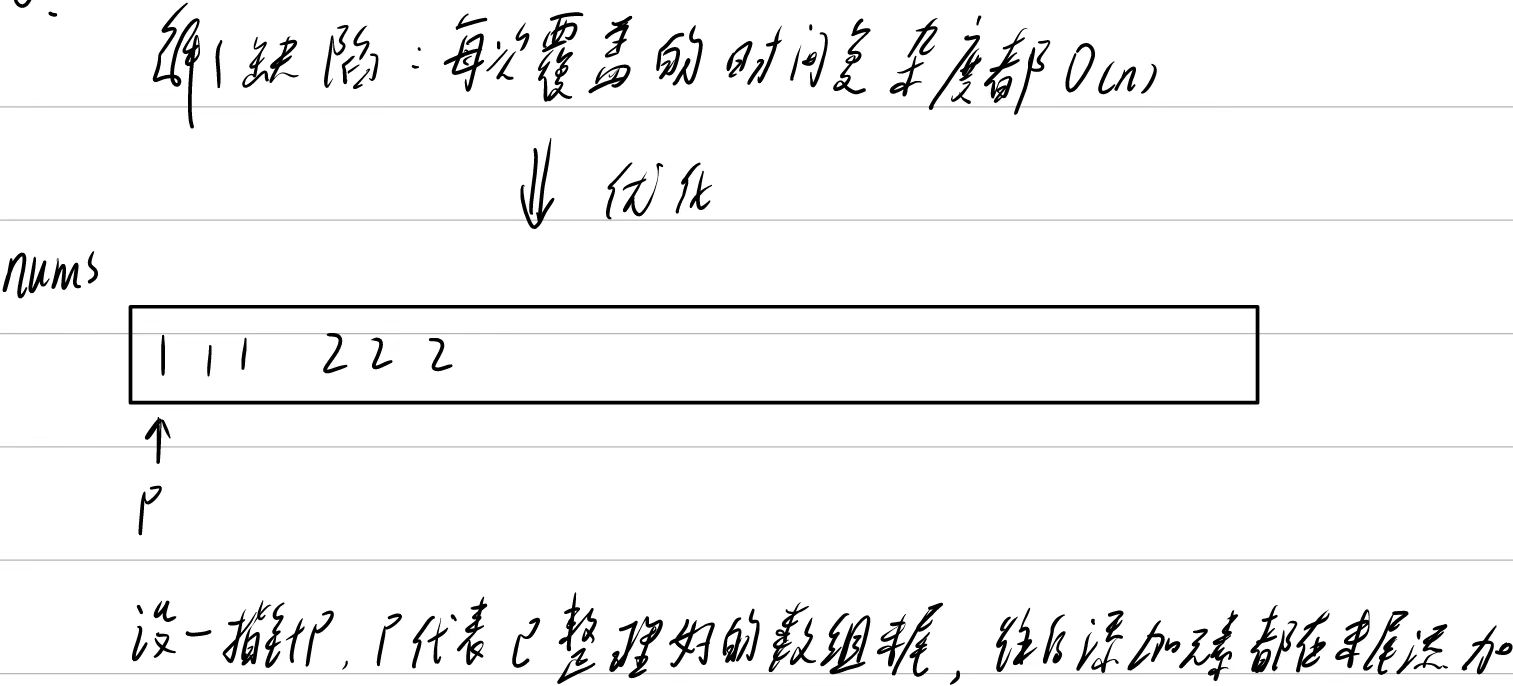 缺陷：每次覆盖的时间复杂度都O(n)
优化
nums
1 1 1 2 2 2
P
设一指针P，P代表已整理好的数组末尾，往后添加元素都在末尾添加